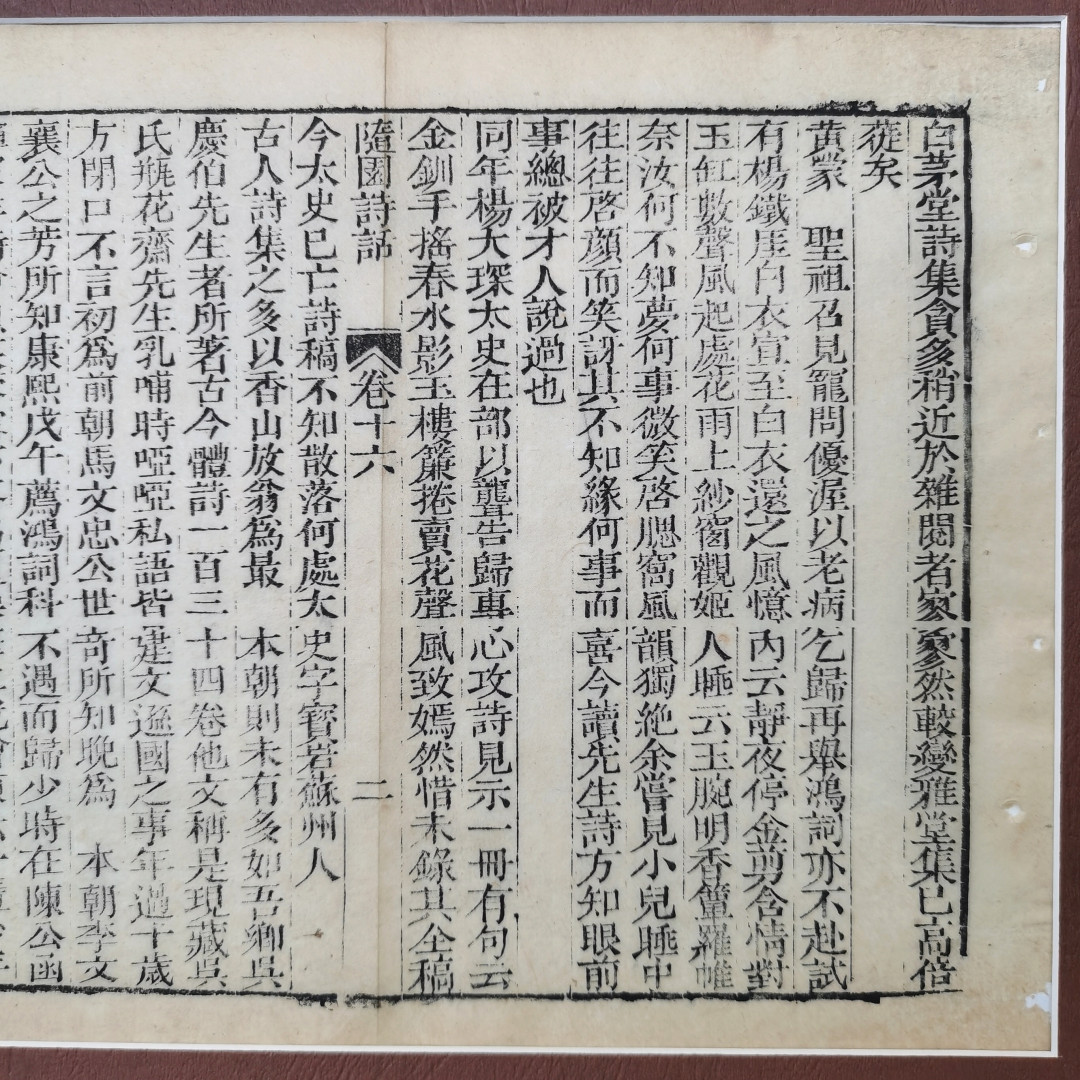 白茅堂詩集貪多稍近於雜閱者寥寥然較變雅堂集已高倍
蓰矣
黃蒙　聖祖召見寵問優渥以老病乞歸再舉鴻詞亦不赴試
有楊鐵崖白衣宣至白衣還之風憶内云靜夜停金剪含情對
玉缸數聲風起處花雨上紗窗觀姬人睡云玉腕明香簟羅帷
奈汝何不知夢何事微笑啓腮窩風韻獨絶余嘗見小兒睡中
往往啓顔而笑訝其不知緣何事而喜今讀先生詩方知眼前
事總被才人說過也
同年楊大琛太史在部以聾告歸専心攻詩見示一冊有句云
金釧手搖春水影玉樓簾捲賣花聲風致嫣然惜未錄其全稿
隨園詩話　卷十六　二
今太史已亡詩稿不知散落何處太史字寳岩蘇州人
古人詩集之多以香山放翁爲最　本朝則未有多如吾鄉吳
慶伯先生者所著古今體詩一百三十四卷他文稱是現藏吳
氏瓶花齋先生乳哺時啞啞私語皆建文遜國之事年過十歲
方閉口不言初爲前朝馬文忠公世奇所知晚爲　本朝李文
襄公之芳所知康熙戊午薦鴻詞科不遇而歸少時在陳公函